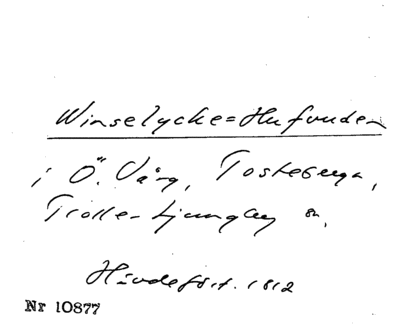 Winselycke=Hufvuden
i Ö. Vång, Tosteberga,
Trolle-Ljungby sn,
1812
Nr 10877